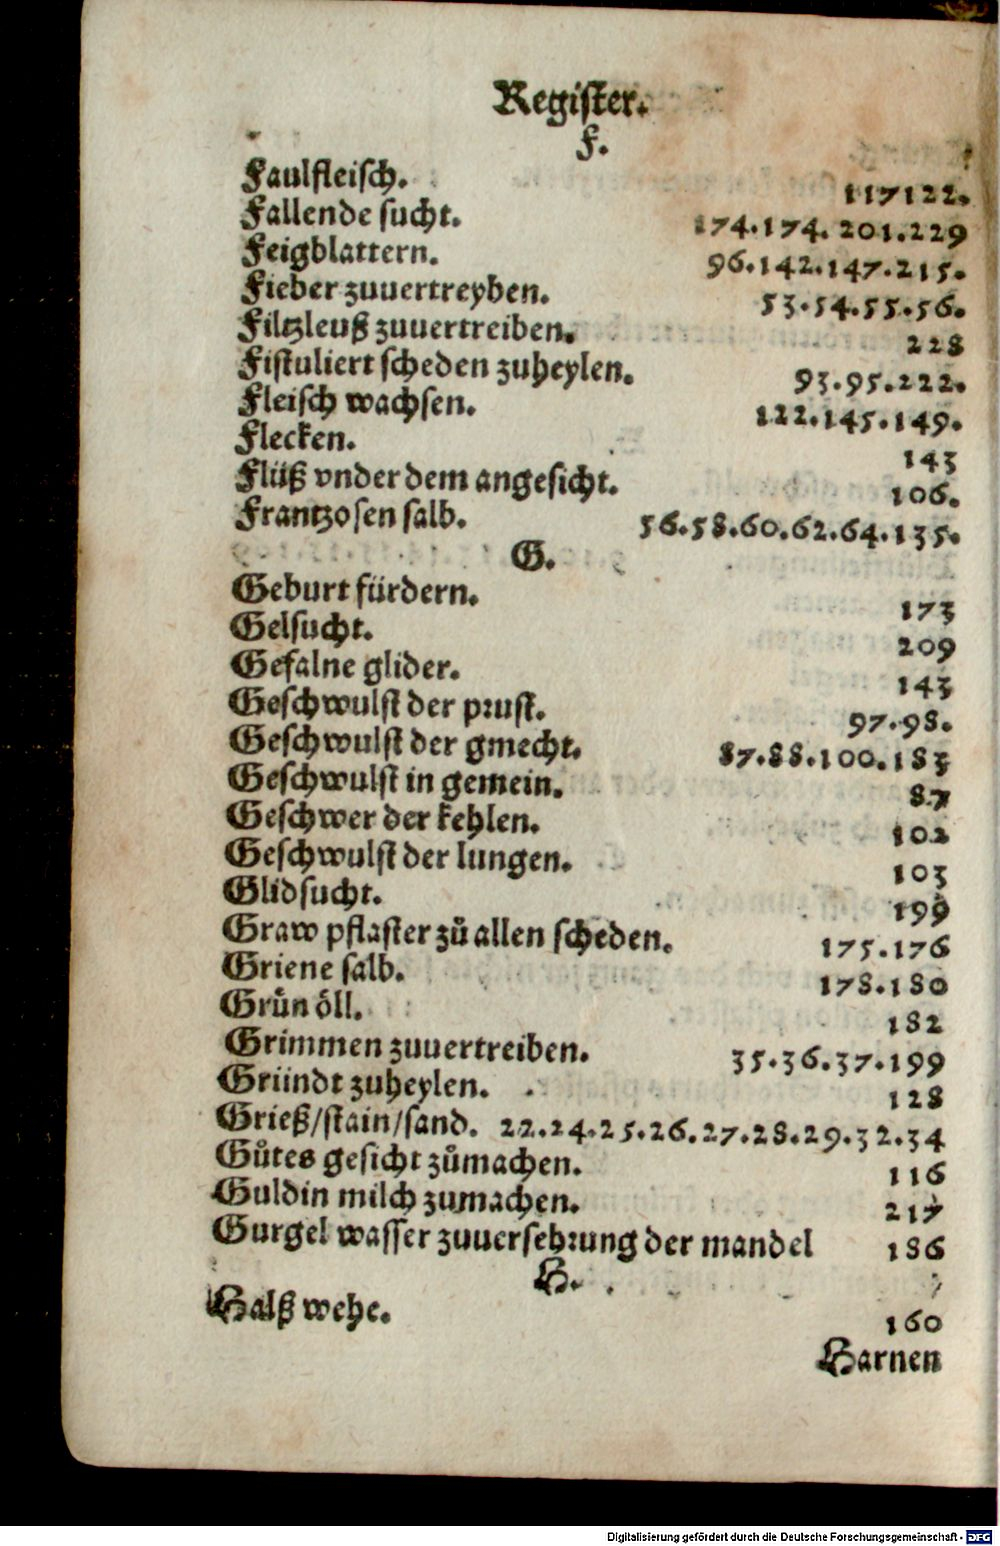 Register.
F.
Faulfleisch. 117122.
Fallende sucht. 174.174. 201.229
Feigblattern. 96.142.147.215.
Fieber zuuertreyben. 53.54.55.56.
Filtzleuß zuuertreiben. 228
Fistuliert scheden zuheylen. 93.95.222.
Fleisch wachsen. 122.145.149.
Flecken. 143
Flüß vnder dem angesicht. 106.
Frantzosen salb. 56.58.60.62.64.135.
G.
Geburt fürdern. 173
Gelsucht. 209
Gefalne glider. 143
Geschwulst der prust. 97.98.
Geschwulst der gmecht. 87.88.100.183
Geschwulst in gemein. 87
Geschwer der kehlen. 102
Geschwulst der lungen. 103
Glidsucht. 199
Graw pflaster zů allen scheden. 175.176
Griene salb. 178.180
Grůn öll. 182
Grimmen zuuertreiben. 35.36.37.199
Gründt zuheylen. 128
Grieß/stain/sand. 22.24.25.26.27.28.29.32.34
Gůtes gesicht zůmachen. 116
Guldin milch zumachen. 217
Gurgel wasser zuuersehrung der mandel 186
H.
Halß wehe. 160
Harnen
Digitalisierung gefördert durch die Deutsche Forschungsgemeinschaft - DFG